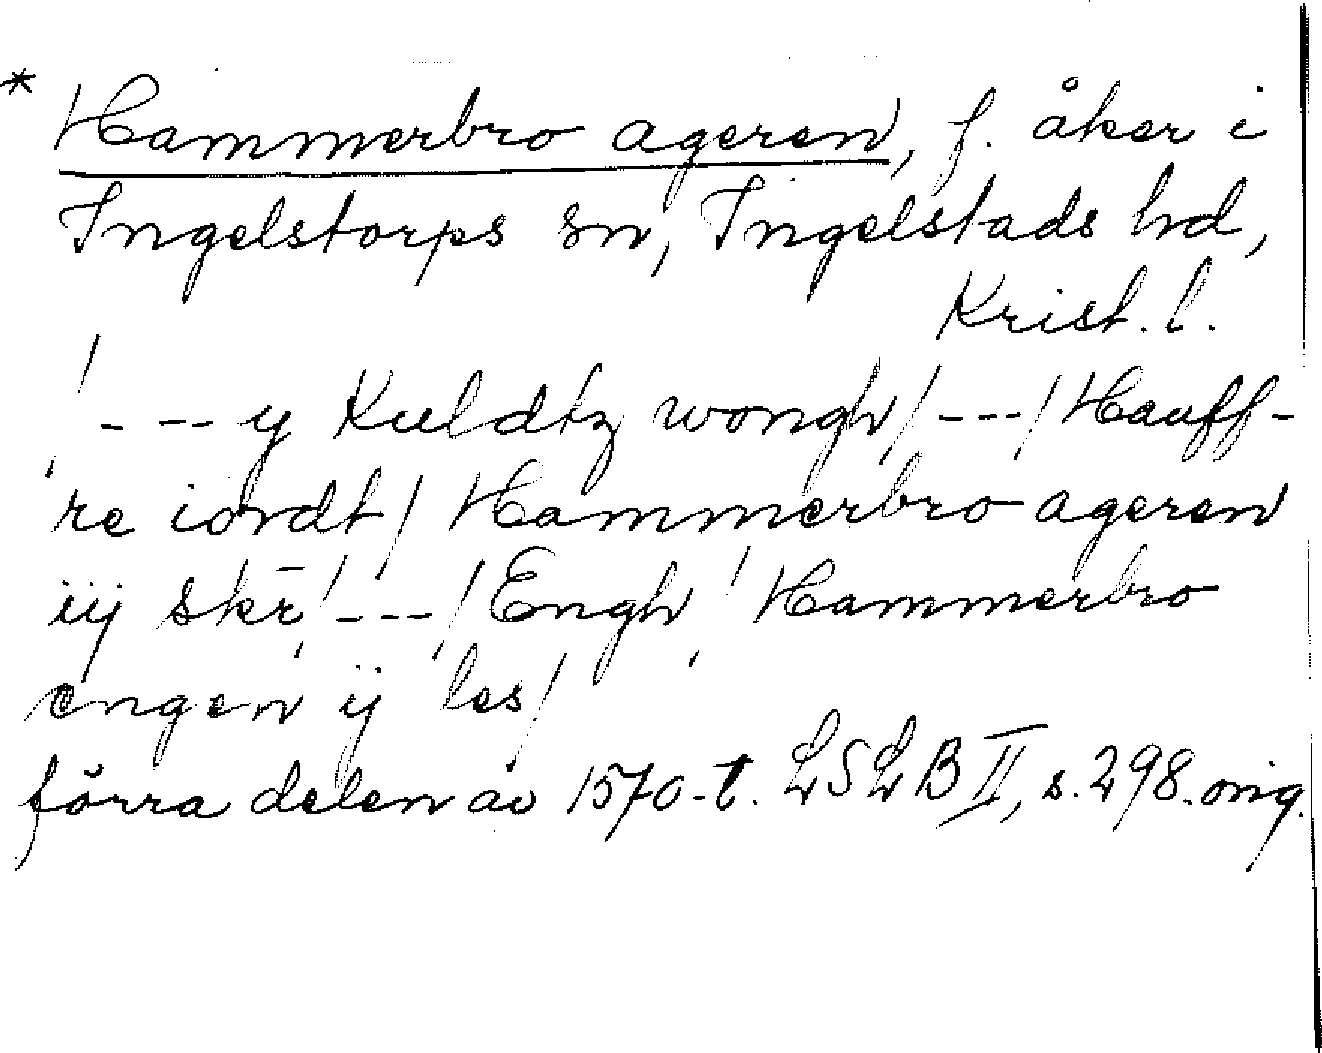 * Hammerbro ageren, f. åker i
Ingelstorps sn, Ingelstads hd,
Krist. l.
/ --- y Kuldtz wongh / --- / Hauff-
re iordt / Hammerbro ageren
iij skr̄ / --- / Engh / Hammerbro
engen ij les /
förra delen av 1570-t. LSLB II, s. 298. orig.